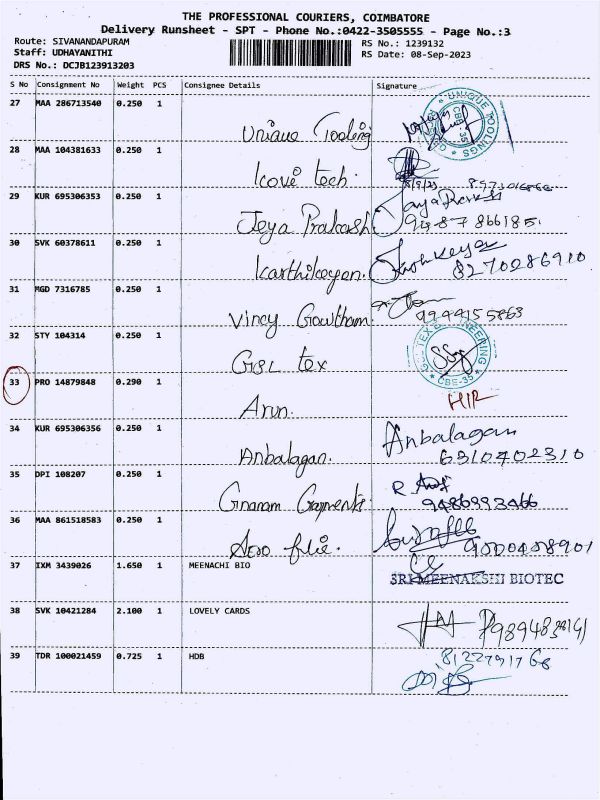 THE PROFESSIONAL COURIERS, COIMBATORE
Delivery Runsheet - SPT - Phone No.:0422-3505555 - Page No.:3
Route: SIVANANDAPURAM
RS No.: 1239132
Staff: UDHAYANITHI
RS Date: 08-Sep-2023
DRS No.: DCJB123913203
S No Consignment No Weight PCS Consignee Details Signature
27 MAA 286713540 0.250 1
Unique Tooling
UNIQUE TOOLINGS CBE-35
28 MAA 104381633 0.250 1
Kovi tech
8/9/23
29 KUR 695306353 0.250 1
Jeya Prakash
9487866185
30 SVK 60378611 0.250 1
Karthikeyan
8270286910
31 MGD 7316785 0.250 1
Vincy Gowtham
9944155863
32 STY 104314 0.250 1
GBL tex
CBE-35
33 PRO 14879848 0.290 1
Arun
HIR
34 KUR 695306356 0.250 1
Anbalagan
Anbalagan
6310402310
35 DPI 108207 0.250 1
Gnanam Garments
9486993466
36 MAA 861518583 0.250 1
9000408901
37 IXM 3439026 1.650 1 MEENACHI BIO
SRI MEENAKSHI BIOTEC
38 SVK 10421284 2.100 1 LOVELY CARDS
39 TDR 100021459 0.725 1 HDB